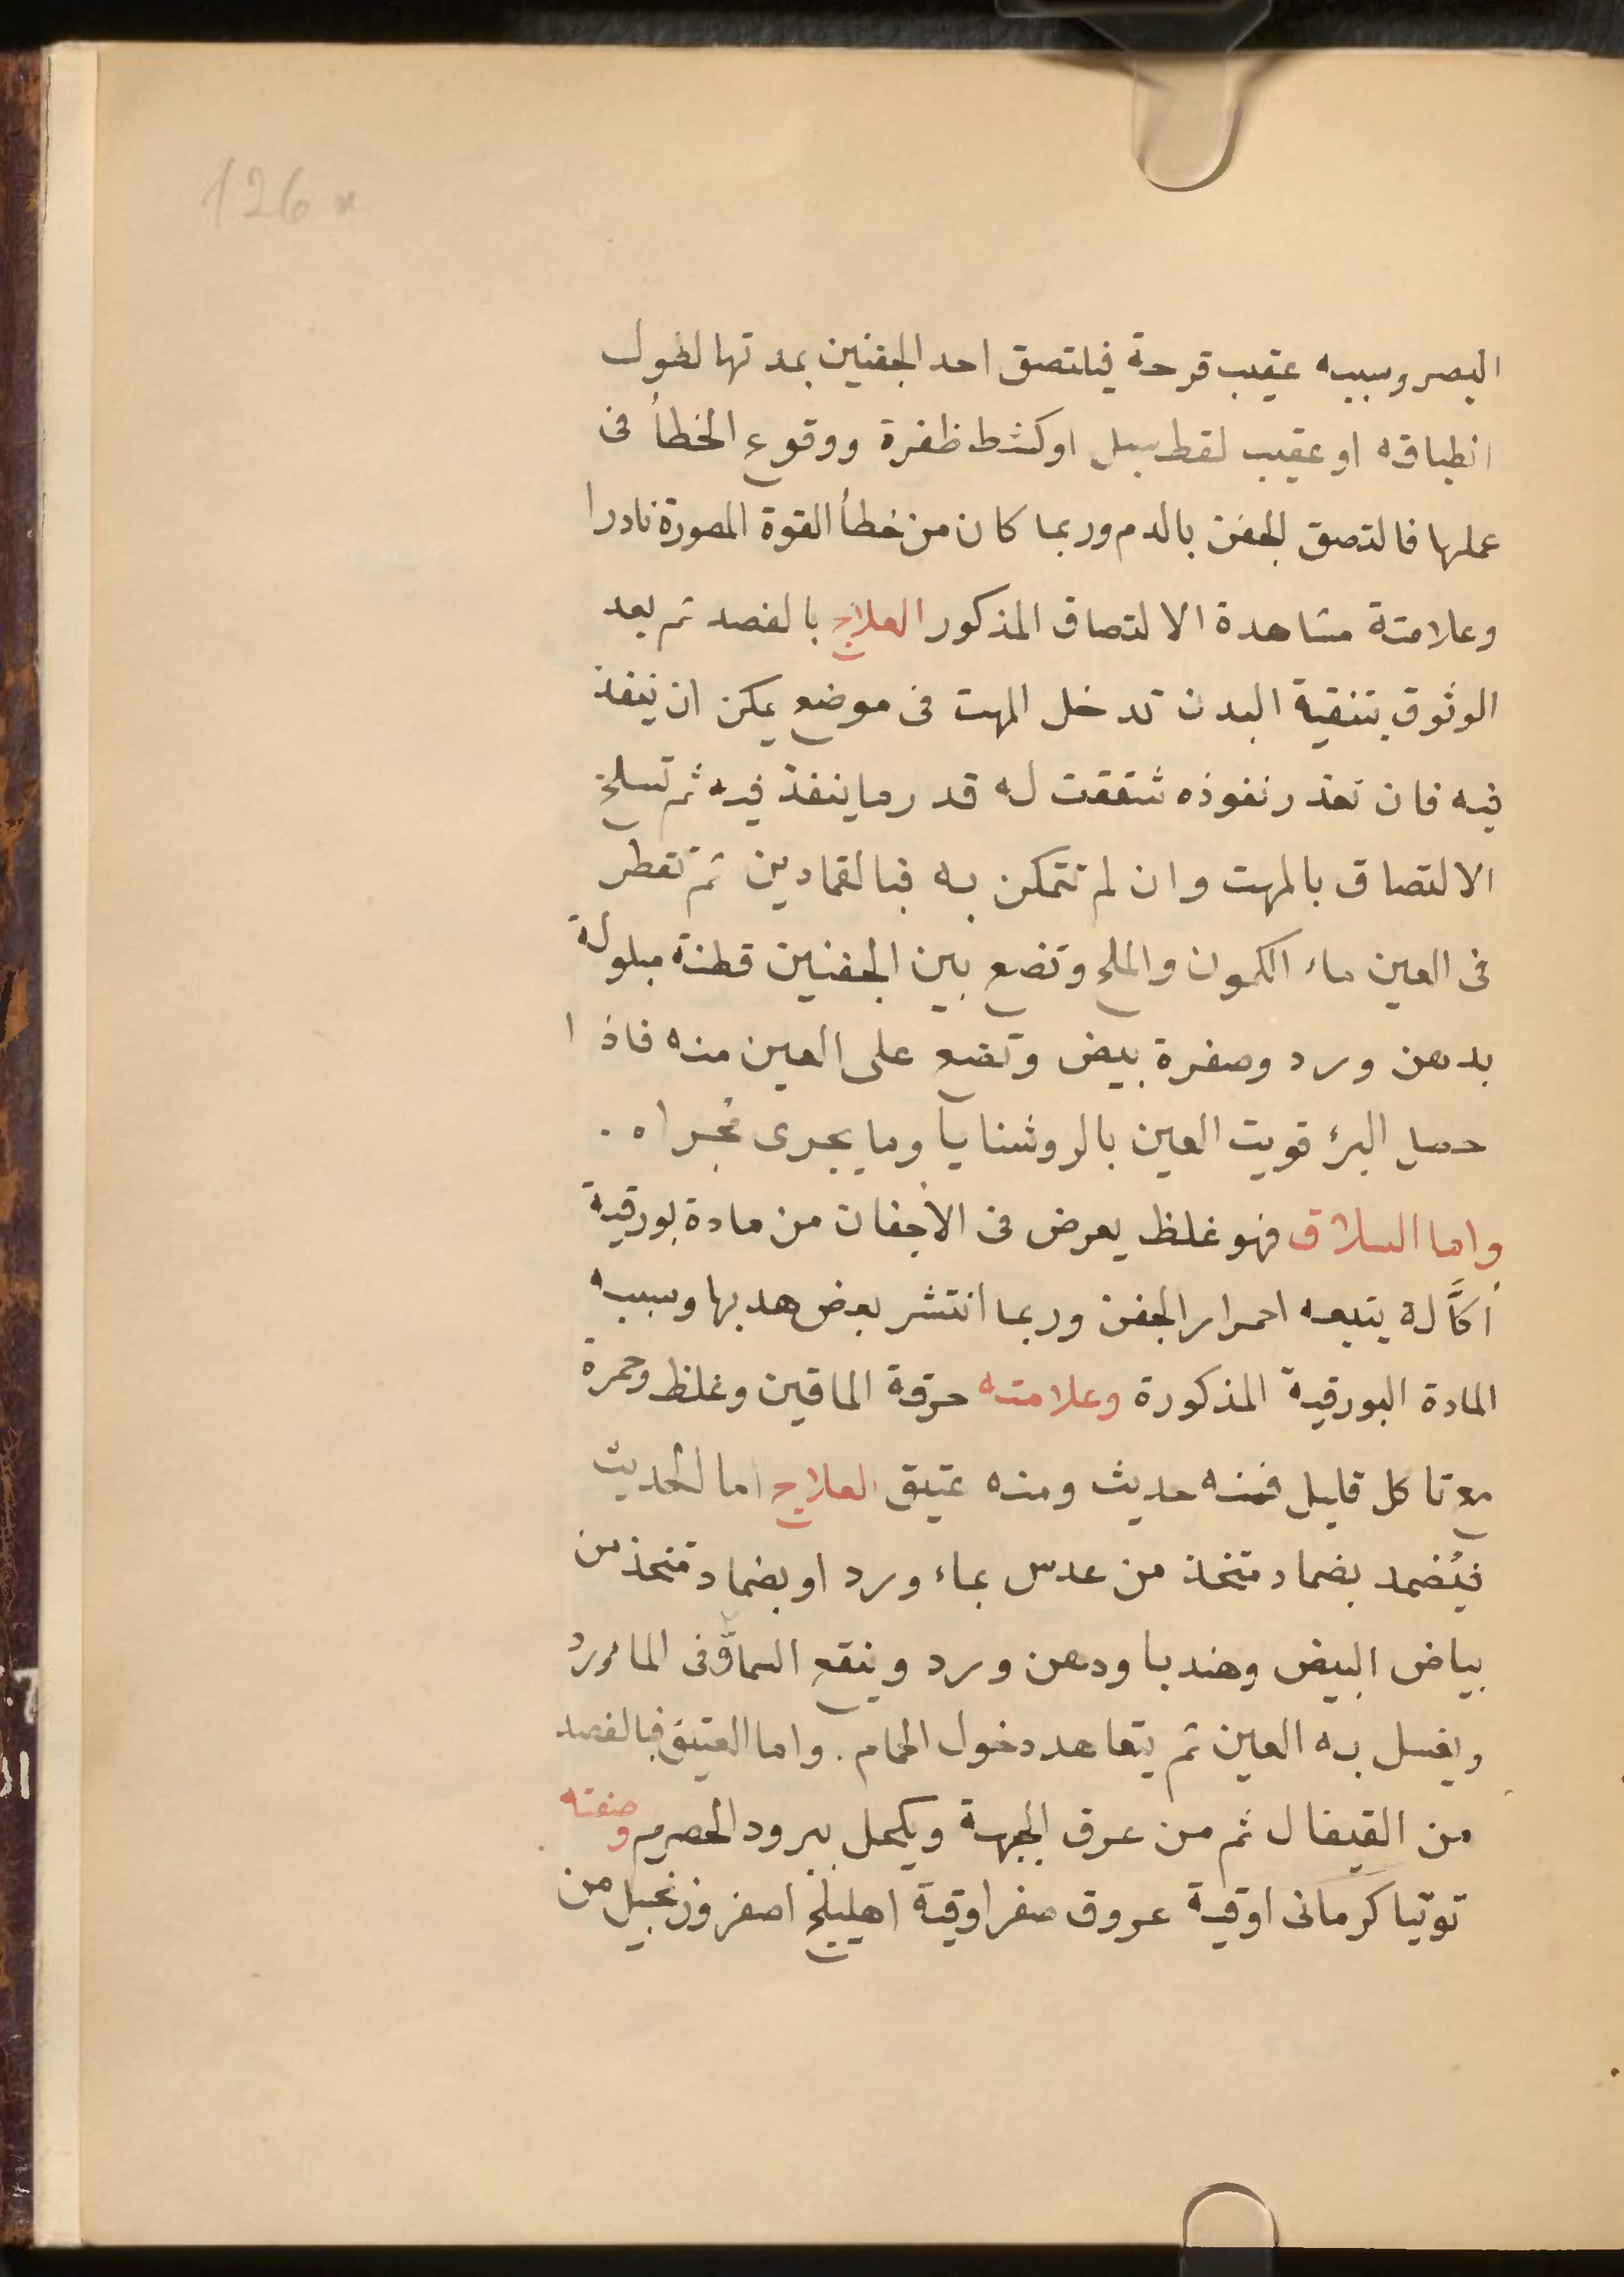 126
البصر وسببه عقيب قرحة فيلتصق احد الجفنين بمدتها لطول
انطباقه او عقيب لقط سبل او كشط ظفرة ووقوع الخطأ فى
عملها فالتصق الجفن بالدم وربما كان من خطأ القوة المصورة نادرا
وعلامتة مشاهدة الالتصاق المذكور العلاج بالفصد ثم بعد
الوثوق بتنقية البدن تدخل المهت فى موضع يمكن ان ينفذ
فيه فان تعذر نفوذه شققت له قدر ما ينفذ فيه ثم تسلخ
الالتصاق بالمهت وان لم تتمكن به فبالقمادين ثم تقطر
فى العين ماء الكمون والملح وتضع بين الجفنين قطنة مبلولة
بدهن ورد وصفرة بيض وتضع على العين منه فاذا
حصل البرء قويت العين بالروشنايا وما يجرى مجراه .
واما السلاق فهو غلظ يعرض فى الأجفان من مادة بورقية
أكّالة يتبعه احمرار الجفن وربما انتشر بعض هدبها وسببه
المادة البورقية المذكورة وعلامته حرقة الماقين وغلظ وحمرة
مع تاكل قليل فمنه حديث ومنه عتيق العلاج اما الحديث
فيُضمد بضماد متخذ من عدس بماء ورد او بضماد متخذ من
بياض البيض وهندبا ودهن ورد وينقع السماق فى الماورد
ويغسل به العين ثم يتعاهد دخول الحمام . واما العتيق فبالفصد
من القيفال ثم من عرق الجبهة ويكحل ببرود الحصرم وصفته
توتيا كرمانى اوقية عروق صفر اوقية اهليلج اصفر وزنجبيل من